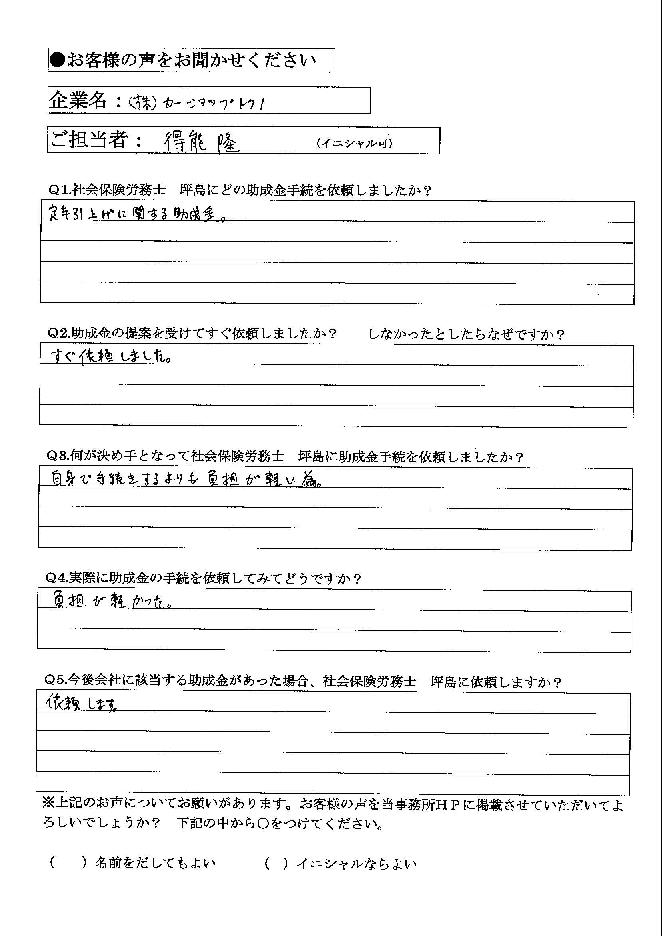 ●お客様の声をお聞かせください
企業名：(株)カーショップトクノ
ご担当者： 得能 隆 （イニシャル可）
Q1.社会保険労務士 坪島にどの助成金手続を依頼しましたか？
定年引上げに関する助成金。
Q2.助成金の提案を受けてすぐ依頼しましたか？ しなかったとしたらなぜですか？
すぐ依頼しました。
Q3.何が決め手となって社会保険労務士 坪島に助成金手続を依頼しましたか？
自身で手続きをするよりも負担が軽い為。
Q4.実際に助成金の手続を依頼してみてどうですか？
負担が軽かった。
Q5.今後会社に該当する助成金があった場合、社会保険労務士 坪島に依頼しますか？
依頼します。
※上記のお声についてお願いがあります。お客様の声を当事務所HPに掲載させていただいてよ
ろしいでしょうか？ 下記の中から○をつけてください。
（ ）名前をだしてもよい （ ）イニシャルならよい